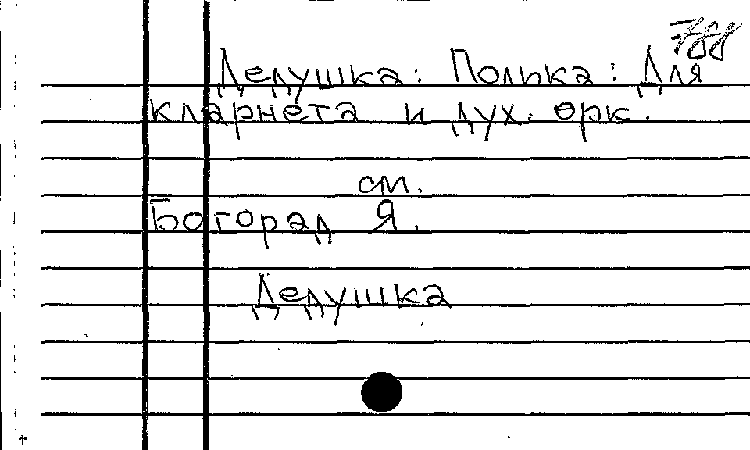 788
Дедушка: Полька: Для
кларнета и дух. орк.
см.
Богорад Я.
Дедушка